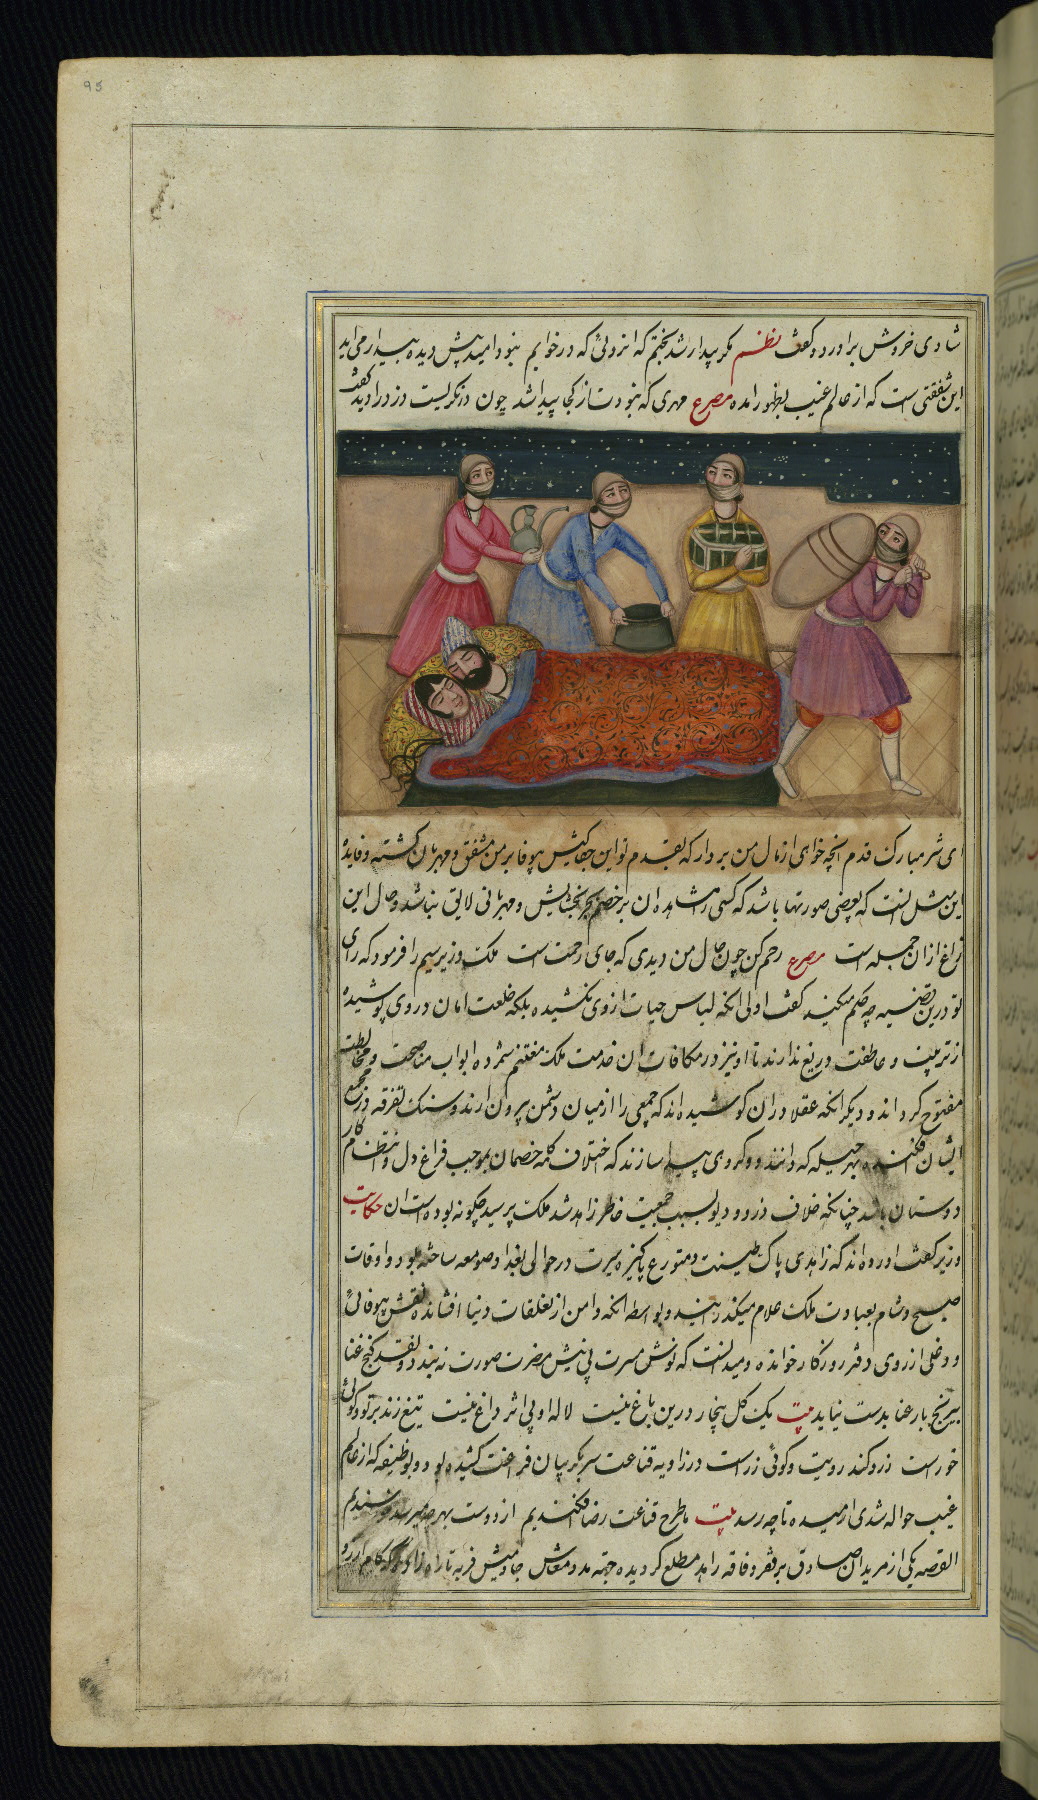 95
شادی خروش براورد و کفت نظم مکر بیدار شد بختم که از دولتی که در خوابم نبود امید پیش دیده بیدار می‌اید
این شفقتی است که از عالم غیب بظهور امده مصرع مهری که نبودت از کجا پیدا شد چون در نکریست دزد را دید کفت
ای شیر مبارک قدم انچه خواهی از مال من بردار که بقدم تو این جفا کیش بیوفا بر من مشفق و مهربان کشته و فایدهٔ
این مثل انست که بعضی صورتها باشد که کسی را مشاهده ان بر خصم بجز بخشایش و مهربانی لایق نباشد و حال این
زاغ از ان جمله است مصرع رحم کن چون حال من دیدی که جای رحمت است ملک وزیر سیم را فرمود که رای
تو درین قضیه چه حکم میکند کفت اولی انکه لباس حیات از وی نکشیده بلکه خلعت امان در وی پوشیده
از تربیت و عاطفت دریغ ندارند تا او نیز در مکافات ان خدمت ملک مغتنم شمرده ابواب مناصحت و مخالطت
مفتوح کرداند و دیکر انکه عقلا در ان کوشیده‌اند که جمعی را از میان دشمن بیرون ارند و سنک تفرقه در مجمع
ایشان افکنده بهر حیله که دانند دو کروی پیدا سازند که اختلاف کلمه خصمان بموجب فراغ دل و انتظام کار
دوستان باشد چنانکه خلاف دزد و دیو بسبب جمعیت خاطر زاهد شد ملک پرسید چکونه بوده است ان حکایت
وزیر کفت اورده‌اند که زاهدی پاک طینت و متورع پاکیزه سیرت در حوالی بغداد صومعه ساخته بود و اوقات
صبح و شام بعبادت ملک علام میکذرانید و بواسطه انکه دامن از تعلقات دنیا افشانده نقش بیوفایی
و دغلی از روی دفتر روزکار خوانده و میدانست که نوش مسرت بی نیش مضرت صورت نه‌بندد و نقد کنج غنا
بی رنج بار عنا بدست نیاید بیت یک کل بی‌خار درین باغ نیست لاله او بی اثر داغ نیست تیغ زند بر تو و کویی
خور است زرد کند رویت و کویی زر است در زاویه قناعت سر بکریبان فراغت کشیده بود و بوظیفه که از عالم
غیب حواله شدی ارمیده تا چه رسد بیت ما طرح قناعت رضا افکندیم از دوست بهر چه میرسد خرسندیم
القصه یکی از مریدان صادق بر فقر و فاقه زاهد مطلع کردیده جهته مدد معاش جاومیش فربه تازه زاد که کام ارزو